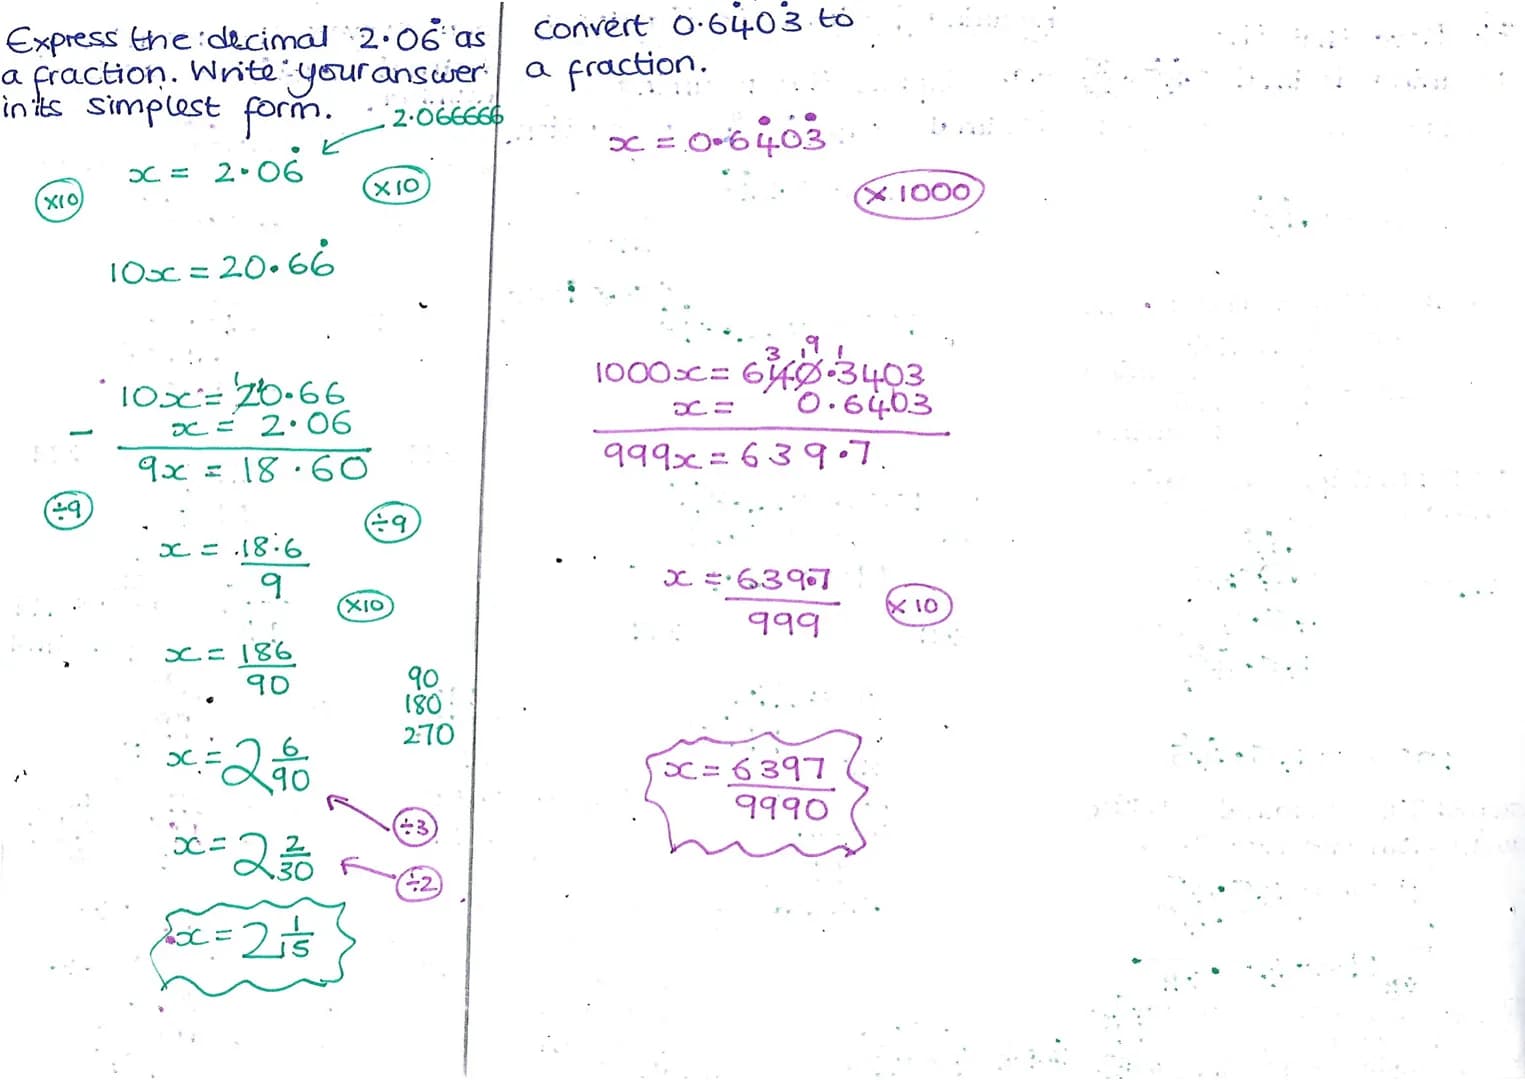 Express the decimal 2.06̇ as
a fraction. Write your answer
in its simplest form.
2.066666
x = 2.06̇
×10
×10
10x = 20.66̇
10x = 20.66
- x = 2.06
9x = 18.60
÷9
÷9
x = 18.6
9
×10
x = 186
90
90
180
270
x = 2 6/90
÷3
x = 2 2/30
÷2
x = 2 1/15
Convert 0.64̇03̇ to
a fraction.
x = 0.64̇03̇
× 1000
3 ,9 1
1000x = 640.3403
x = 0.6403
999x = 639.7
x = 639.7
999
×10
x = 6397
9990